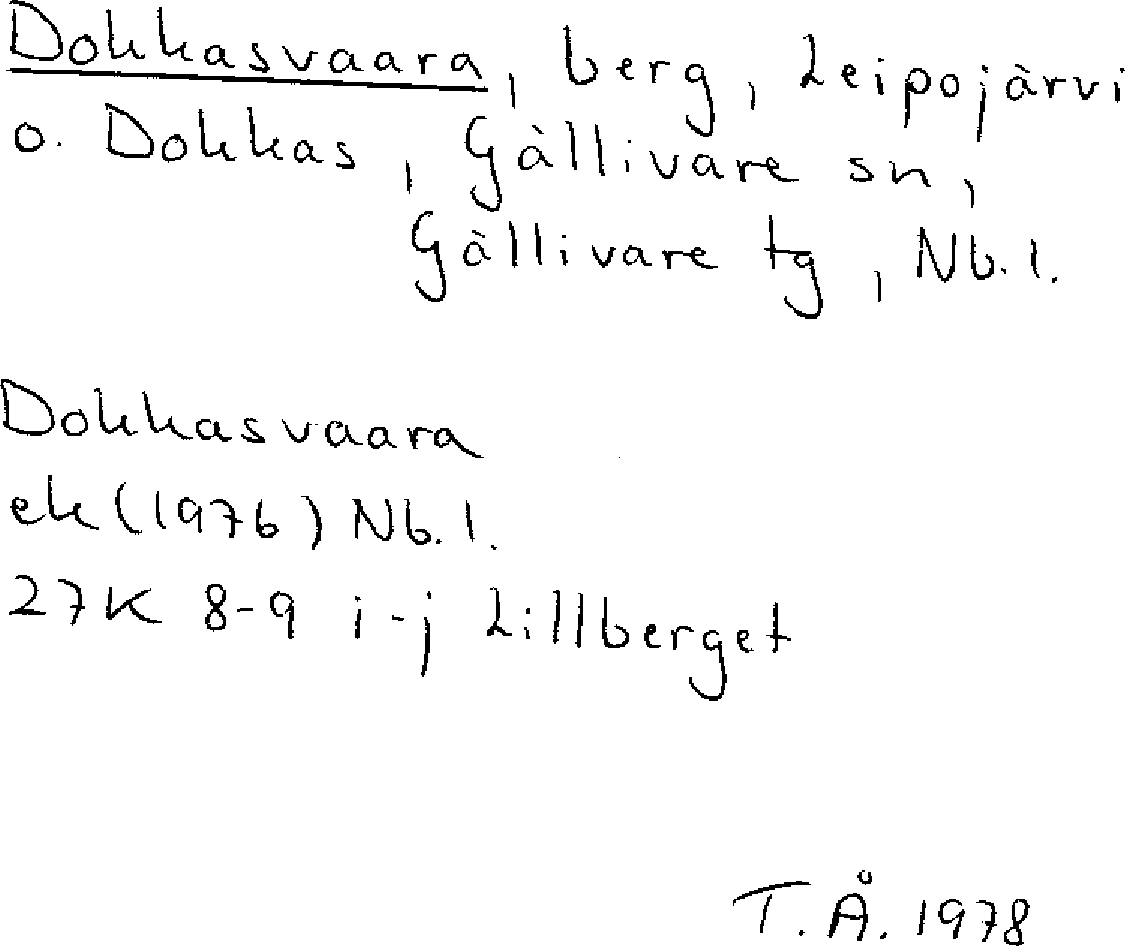 Dokkasvaara, berg, Leipojärvi
o. Dokkas, Gällivare sn,
Gällivare tg, Nb. l.
Dokkasvaara
ek (1976) Nb. l.
27K 8-9 i-j Lillberget
T. Å. 1978